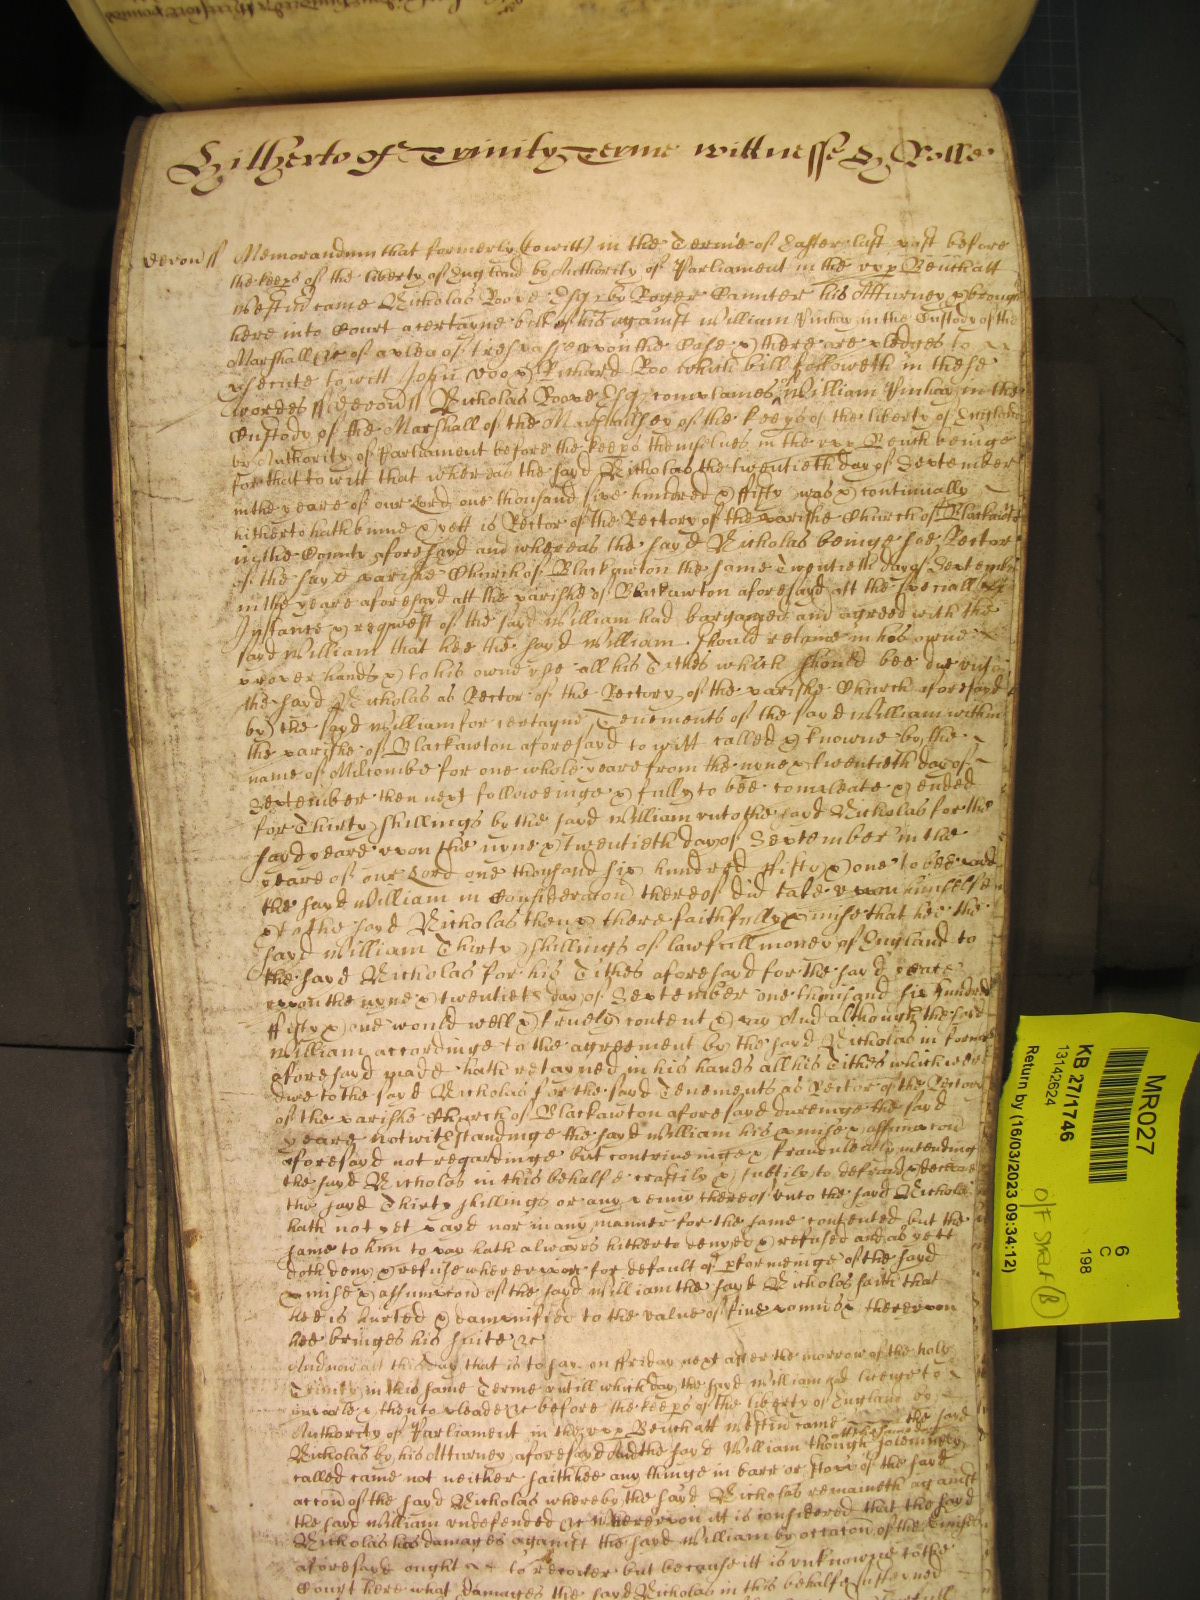 Hitherto of Trinity Terme wittnesse H Rolle
devon ss Memorandum that formerly (to witt) in the Terme of Easter last past before
the keeps of the liberty of England by Authority of Parliament in the upp Bench att
Westm came Nicholas Roope Esqr by Roger Caunter his Atturney & brought
here into Court a certayne bill of his against William Pinhay in the Custody of the
Marshall &c of a plea of trespasse upon the Case & there are pledges to
psecute to witt John Doo & Richard Roo which bill followeth in these
wordes ss devon ss Nicholas Roope Esq complaines William Pinhay in the
Custody of the Marshall of the Marshallsey of the keeps of the liberty of England
by Authority of Parliament before the keeps themselves in the upp Bench beinge
for that to witt that whereas the sayd Nicholas the twentieth day of September
in the yeare of our Lord one thousand sixe hundred & ffifty was & continually
hitherto hath binne & yett is Rector of the Rectory of the parishe Church of Blackawton
in the County aforesayd and whereas the sayd Nicholas beinge soe Rector
of the sayd parishe Church of Blackawton the same Twentieth day of September
in the yeare aforesayd att the parishe of Blackawton aforesayd att the speciall
Instance & request of the sayd William had bargayned and agreed with the
sayd William that hee the sayd William should retaine in his owne
proper hands & to his owne use all his Tithes which should bee due unto
the sayd Nicholas as Rector of the Rectory of the parishe Church aforesayd
by the sayd William for certayne Tenements of the sayd William within
the parishe of Blackawton aforesayd to witt called & knowne by the
name of Milcombe for one whole yeare from the nyne & twentieth day of
September then next followeinge & fully to bee compleate & ended
for Thirty shillings by the sayd William unto the sayd Nicholas for the
sayd yeare upon the nyne & twentieth day of September in the
yeare of our Lord one thousand six hundred ffifty & one to bee payd
the sayd William in Consideracon thereof did take upon himselfe
& to the sayd Nicholas then & there faithfully pmise that hee the
sayd William Thirty shillings of lawfull money of England to
the sayd Nicholas for his Tithes aforesayd for the sayd yeare
upon the nyne & twentieth day of September one thousand six hundred
ffifty & one would well & truely content & pay And although the sayd
William accordinge to the agreement by the sayd Nicholas in forme
aforesayd made hath retayned in his hands all his Tithes which were
due to the sayd Nicholas for the sayd Tenements as Rector of the Rectory
of the parishe Church of Blackawton aforesayd dureinge the sayd
yeare Notwithstandinge the sayd William his pmise & assumpcon
aforesayd not regardinge but contriveinge & fraudulently intending
the sayd Nicholas in this behalfe craftily & subtily to defraud & deceave
the sayd Thirty shillings or any penny thereof unto the sayd Nicholas
hath not yet payd nor in any manner for the same contented but the
same to him to pay hath alwayes hitherto denyed & refused and as yett
doth deny & refuse whereupon for default of pformeinge of the sayd
pmise & assumpcon of the sayd William the sayd Nicholas saith that
hee is hurted & damnified to the value of five pounds & thereupon
hee bringes his suite &c
And now att this day that is to say on ffriday next after the morrow of the holy
Trinity in this same Terme untill which day the sayd William had licence to
imparle & then to pleade &c before the keeps of the liberty of England by
Authority of Parliament in the upp Bench att Westm came the sayd
Nicholas by his Atturney aforesayd And the sayd William att the same day though solemnely
called came not neither saith hee any thinge in barr or stopp of the sayd
accon of the sayd Nicholas whereby the sayd Nicholas remaineth against
the sayd William undefended &c Whereupon itt is considered that the sayd
Nicholas his damages against the sayd William by occacon of the pmises
aforesayd ought to recover but because itt is unknowne to the
Court here what damages the sayd Nicholas in this behalfe sustened
MR027
6
C
198
KB 27/1746
13142624
Return by (16/03/2023 09:34:12)